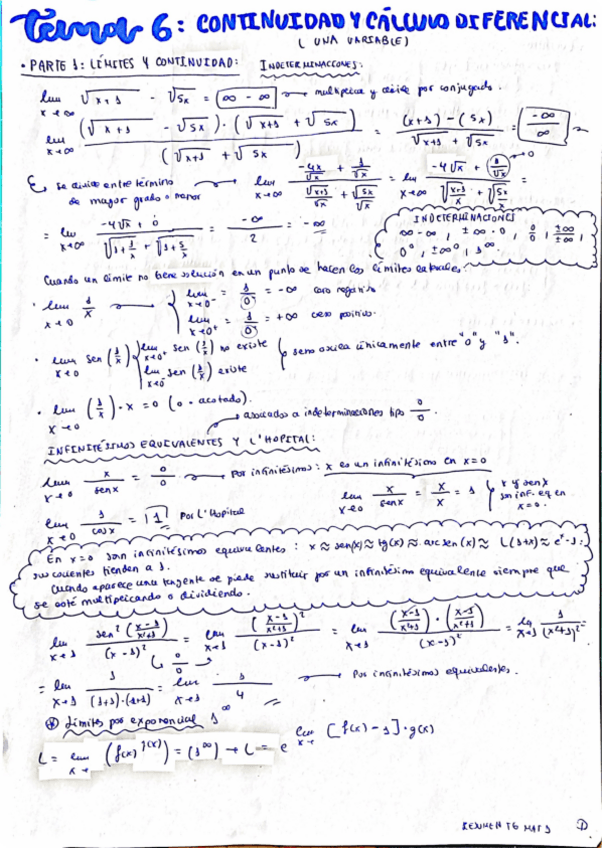 Tema 6: CONTINUIDAD Y CÁLCULO DIFERENCIAL:
(UNA VARIABLE)
• PARTE 1: LÍMITES Y CONTINUIDAD: INDETERMINACIONES:
lim x→∞ √(x+1) - √(5x) = [∞ - ∞] → multiplica y divide por conjugado.
lim x→∞ (√(x+1) - √(5x)) · (√(x+1) + √(5x)) / (√(x+1) + √(5x)) = (x+1) - (5x) / √(x+1) + √(5x) = [-∞/∞]
Se divide entre término de mayor grado → lim x→∞ (-4x/√x + 1/√x) / (√(x+1)/√x + √(5x)/√x) = lim x→∞ (-4√x + 1/√x) / (√((x+1)/x) + √(5x/x)) =
-∞/2 = -∞
INDETERMINACIONES
∞ - ∞, ±∞ · 0, 0/0, ±∞/±∞,
0^0, ±∞^0, 1^∞
Cuando un límite no tiene solución en un punto se hacen los límites laterales.
• lim x→0 1/x → { lim x→0⁻ = 1/0⁻ = -∞ caso negativo
lim x→0⁺ = 1/0⁺ = +∞ caso positivo.
• lim x→0 sen (1/x) { lim x→0⁺ sen (1/x) no existe
lim x→0⁻ sen (1/x) existe
} seno oscila únicamente entre "0" y "1".
• lim x→0 (1/x) · x = 0 (0 · acotado).
→ asociados a indeterminaciones tipo 0/0.
INFINITÉSIMOS EQUIVALENTES Y L'HOPITAL:
lim x→0 x/senx = 0/0 → Por infinitésimos: x es un infinitésimo en x=0
lim x→0 x/senx = x/x = 1 { x y senx son inf. eq en x=0.
lim x→0 1/cosx = |1| Por L'Hopital
En x=0 son infinitésimos equivalentes: x ≈ sen(x) ≈ tg(x) ≈ arc sen(x) ≈ L(1+x) ≈ eˣ-1:
sus cocientes tienden a 1.
Cuando aparece una tangente se puede sustituir por un infinitésimo equivalente siempre que
se esté multiplicando o dividiendo.
lim x→1 sen²((x-1)/(x²+1)) / (x-1)² = lim x→1 ((x-1)/(x²+1))² / (x-1)² = lim x→1 ((x-1)/(x²+1)) · ((x-1)/(x²+1)) / (x-1)² = lim x→1 1/(x²+1)² =
0/0
= lim x→1 1/((1+1)·(1+1)) = lim x→1 1/4 → Por infinitésimos equivalentes.
⊛ Límites por exponencial 1^∞
L = lim x→ (f(x)^g(x)) = (1^∞) → L = e^(lim x→ [f(x)-1]·g(x))
RESUMEN T6 MAT 1 ①